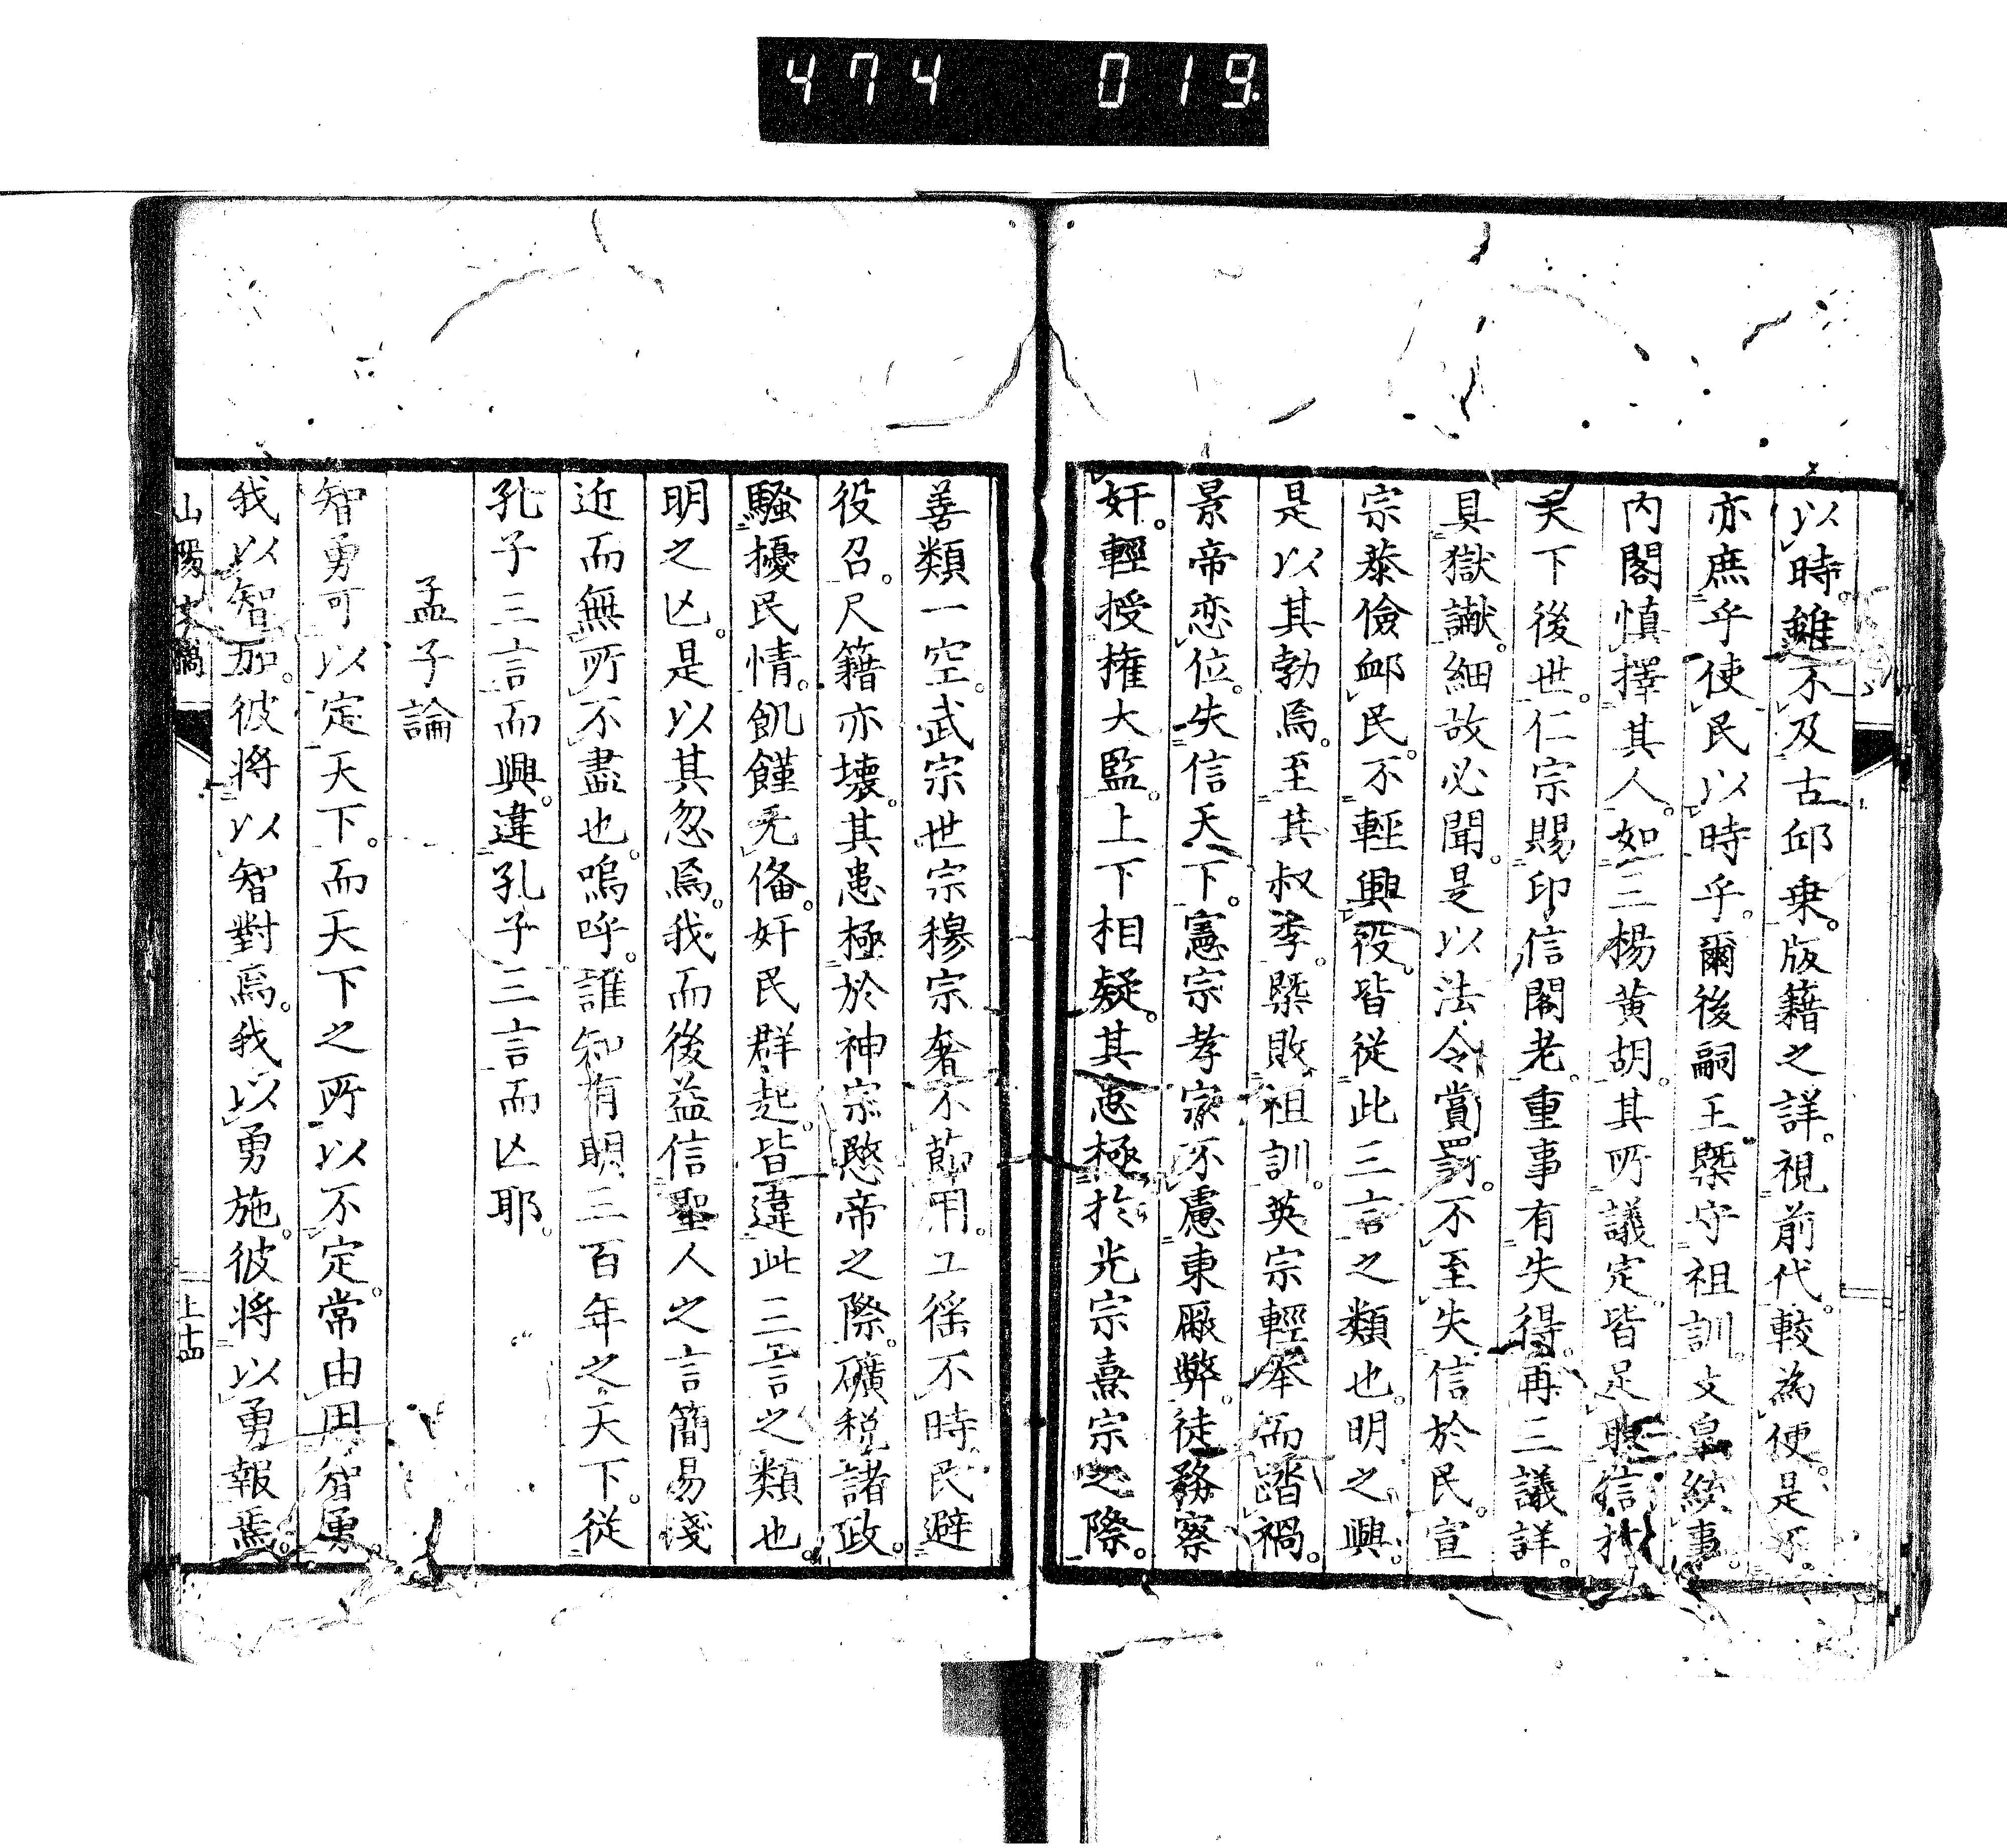 474 019
以時。雖不及古邱乗。版籍之詳。視前代。較為便。是不。
亦庶乎使民以時乎。爾後嗣王槩守祖訓。文皇綂事。
内閣慎擇其人。如三楊黄胡。其所議定。皆足取信於
天下後世。仁宗賜印信閣老。重事有失得。再三議詳。
具獄讞。細故必聞。是以法令賞罰。不至失信於民。宣
宗恭儉衈民。不輕興役。皆從此三言之類也。明之興。
是以其勃焉。至其叔季。槩敗祖訓。英宗輕舉而蹈禍。
景帝恋位。失信天下。憲宗孝宗不慮東廠弊。徒務察
奸。輕授権大監。上下相疑。其患極於光宗熹宗之際。
善類一空。武宗世宗穆宗奢不節用。工徭不時。民避
役召。尺籍亦壊。其患極於神宗愍帝之際。礦税諸政。
騷擾民情。飢饉无俻。奸民群起。皆違此三言之類也。
明之亾。是以其忽焉。我而後益信聖人之言簡易淺
近而無所不盡也。嗚呼。誰知有明三百年之天下。從
孔子三言而興。違孔子三言而亾耶。
孟子論
智勇可以定天下。而天下之所以不定。常由用智勇。
我以智加。彼将以智對焉。我以勇施。彼将以勇報焉。
山陽文稿
上十四